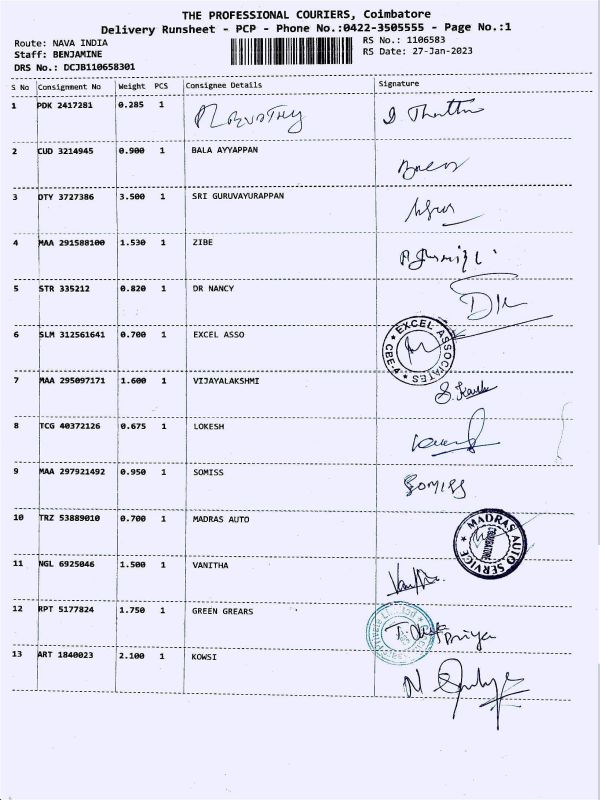 THE PROFESSIONAL COURIERS, Coimbatore
Delivery Runsheet - PCP - Phone No.:0422-3505555 - Page No.:1
Route: NAVA INDIA
Staff: BENJAMINE
DRS No.: DCJB110658301
RS No.: 1106583
RS Date: 27-Jan-2023
S No Consignment No Weight PCS Consignee Details Signature
1 PDK 2417281 0.285 1
2 CUD 3214945 0.900 1 BALA AYYAPPAN
3 OTY 3727386 3.500 1 SRI GURUVAYURAPPAN
4 MAA 291588100 1.530 1 ZIBE
5 STR 335212 0.820 1 DR NANCY
6 SLM 312561641 0.700 1 EXCEL ASSO
EXCEL ASSOCIATES
CBE-4
7 MAA 295097171 1.600 1 VIJAYALAKSHMI
8 TCG 40372126 0.675 1 LOKESH
9 MAA 297921492 0.950 1 SOMISS SOMISS
10 TRZ 53889010 0.700 1 MADRAS AUTO
MADRAS AUTO SERVICE
COIMBATORE
11 NGL 6925046 1.500 1 VANITHA
12 RPT 5177824 1.750 1 GREEN GREARS
Priya
13 ART 1840023 2.100 1 KOWSI